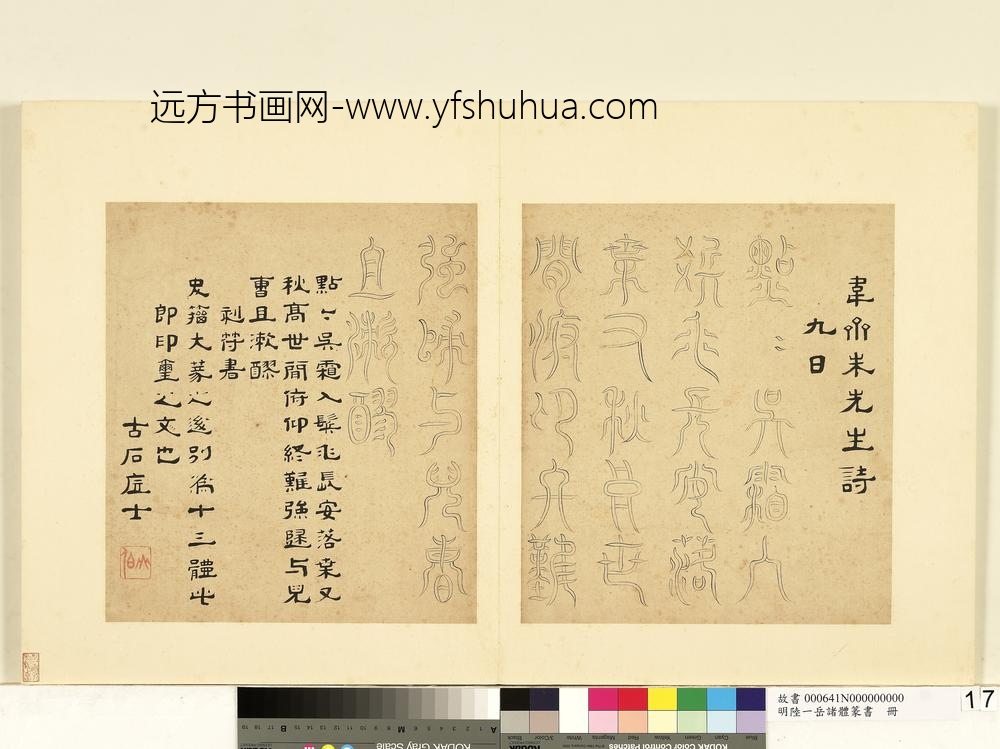 远方书画网-www.yfshuhua.com
韋齋朱先生詩
九日
點〻吳霜入
鬢毛長安落
葉又秋高世
間俯仰終難
強歸与兒曹
且漱醪
點〻吳霜入鬢毛長安落葉又
秋髙世間俯仰終難強歸与兒
曹且漱醪
刻符書
史籀大篆之後別為十三體此
即印璽之文也
古石士
故書 000641N000000000
明陸一岳諸體篆書 冊
17
KODAK Gray Scale
KODAK Color Control Patches